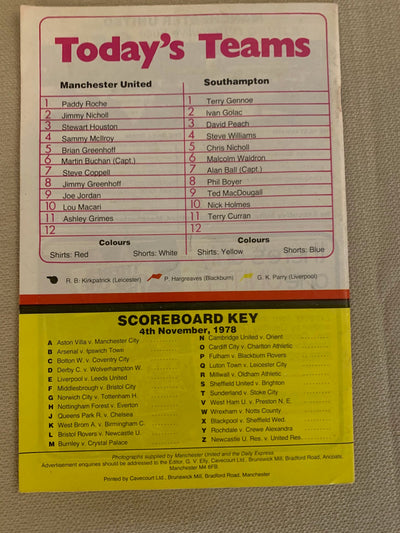 Today's Teams
Manchester United
1 Paddy Roche
2 Jimmy Nicholl
3 Stewart Houston
4 Sammy McIlroy
5 Brian Greenhoff
6 Martin Buchan (Capt.)
7 Steve Coppell
8 Jimmy Greenhoff
9 Joe Jordan
10 Lou Macari
11 Ashley Grimes
12
Colours
Shirts: Red Shorts: White
Southampton
1 Terry Gennoe
2 Ivan Golac
3 David Peach
4 Steve Williams
5 Chris Nicholl
6 Malcolm Waldron
7 Alan Ball (Capt.)
8 Phil Boyer
9 Ted MacDougall
10 Nick Holmes
11 Terry Curran
12
Colours
Shirts: Yellow Shorts: Blue
R. B. Kirkpatrick (Leicester) P. Hargreaves (Blackburn) G. K. Parry (Liverpool)
SCOREBOARD KEY
4th November, 1978
A Aston Villa v. Manchester City
B Arsenal v. Ipswich Town
C Bolton W. v. Coventry City
D Derby C. v. Wolverhampton W.
E Liverpool v. Leeds United
F Middlesbrough v. Bristol City
G Norwich City v. Tottenham H.
H Nottingham Forest v. Everton
J Queens Park R. v. Chelsea
K West Brom A. v. Birmingham C.
L Bristol Rovers v. Newcastle U.
M Burnley v. Crystal Palace
N Cambridge United v. Orient
O Cardiff City v. Charlton Athletic
P Fulham v. Blackburn Rovers
Q Luton Town v. Leicester City
R Millwall v. Oldham Athletic
S Sheffield United v. Brighton
T Sunderland v. Stoke City
V West Ham U. v. Preston N. E.
W Wrexham v. Notts County
X Blackpool v. Sheffield Wed.
Y Rochdale v. Crewe Alexandra
Z Newcastle U. Res. v. United Res.
Photographs supplied by Manchester United and the Daily Express.
Advertisement enquiries should be addressed to the Editor, G. V. Elly, Cavecourt Ltd., Brunswick Mill, Bradford Road, Ancoats,
Manchester M4 6FB.
Printed by Cavecourt Ltd., Brunswick Mill, Bradford Road, Manchester